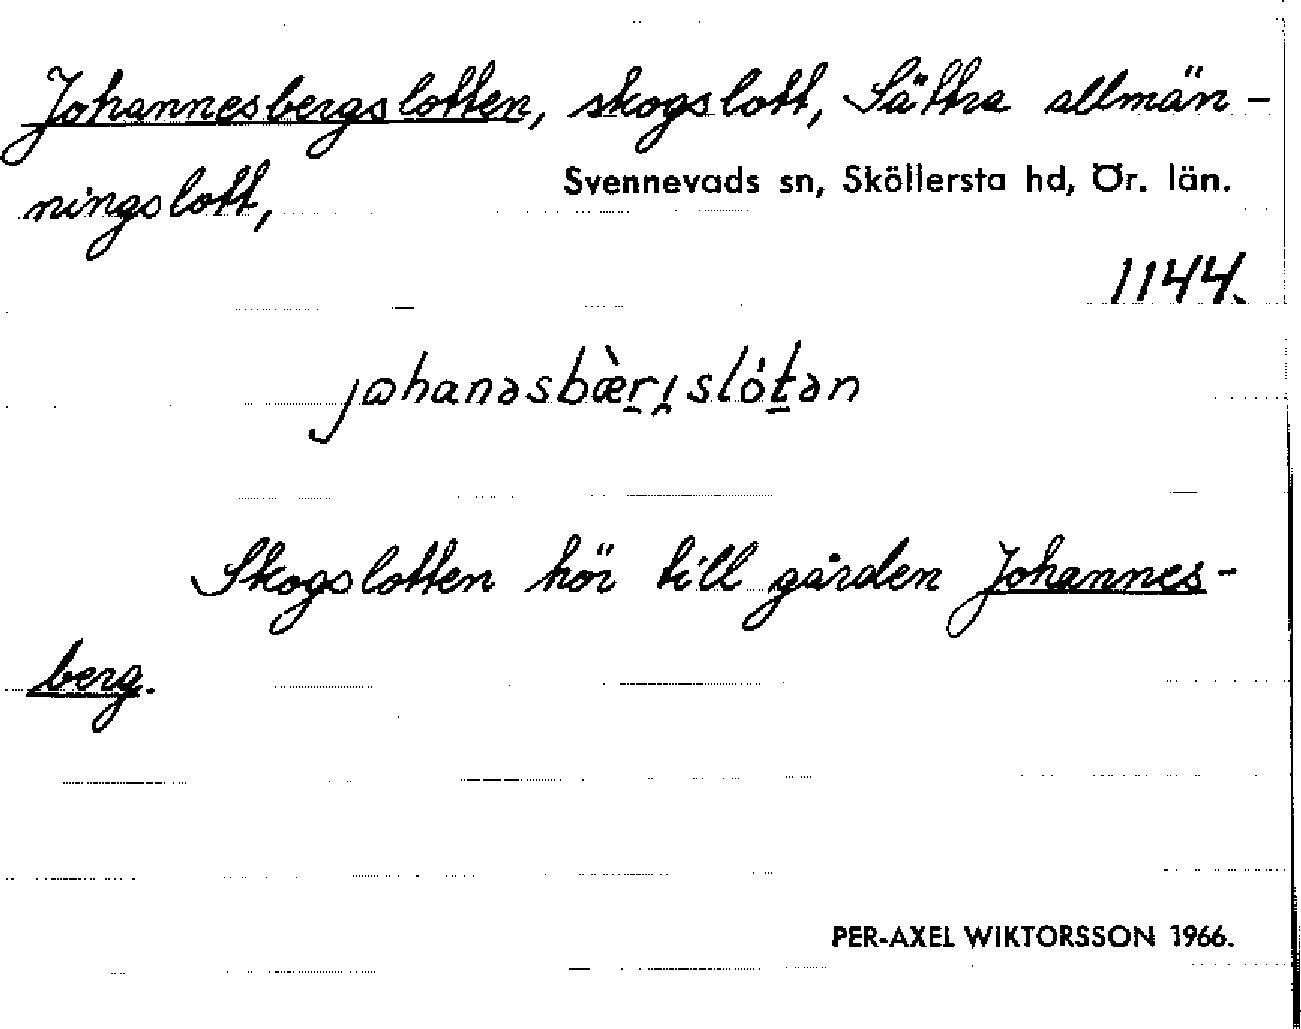 Johannesbergslotten, skogslott, Sättra allmän-
ningslott,
Svennevads sn, Sköllersta hd, Ör. län.
1144.
Skogslotten hör till gården Johannes-
berg.
PER-AXEL WIKTORSSON 1966.